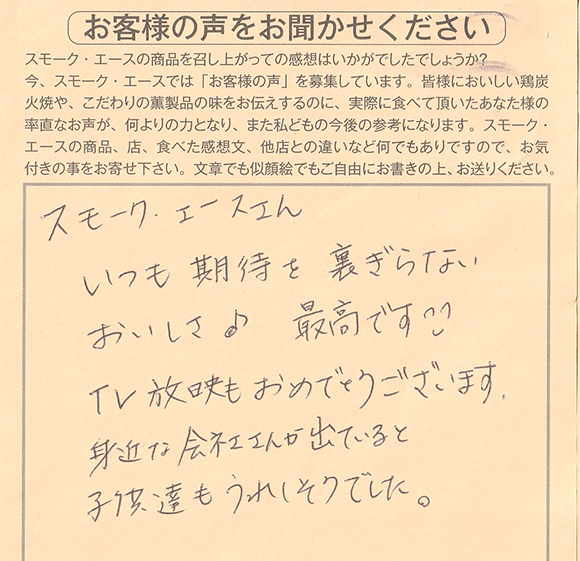 お客様の声をお聞かせください
スモーク・エースの商品を召し上がっての感想はいかがでしたでしょうか?
今、スモーク・エースでは「お客様の声」を募集しています。皆様においしい鶏炭
火焼や、こだわりの薫製品の味をお伝えするのに、実際に食べて頂いたあなた様の
率直なお声が、何よりの力となり、また私どもの今後の参考になります。スモーク・
エースの商品、店、食べた感想文、他店との違いなど何でもありですので、お気
付きの事をお寄せ下さい。文章でも似顔絵でもご自由にお書きの上、お送りください。
スモーク・エースさん
いつも期待を裏ぎらない
おいしさ♪ 最高です
TV放映もおめでとうございます。
身近な会社さんが出ていると
子供達もうれしそうでした。